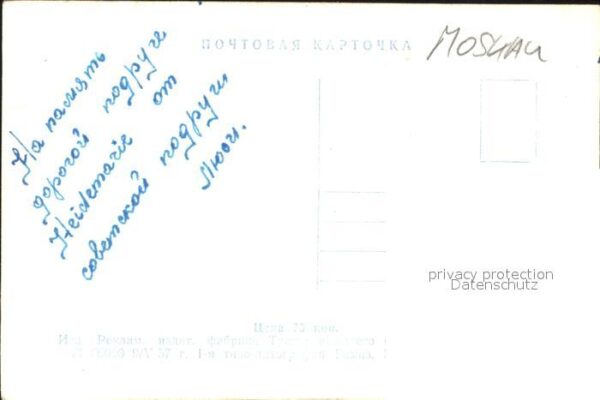 ПОЧТОВАЯ КАРТОЧКА
MOSKAU
На память
дорогой подруги
Heidemarie от
советской подруги
Люси.
privacy protection
Datenschutz
Цена 75 коп.
Изд. Реклам. издат. фабрики
57 г. 1-я типо-литография